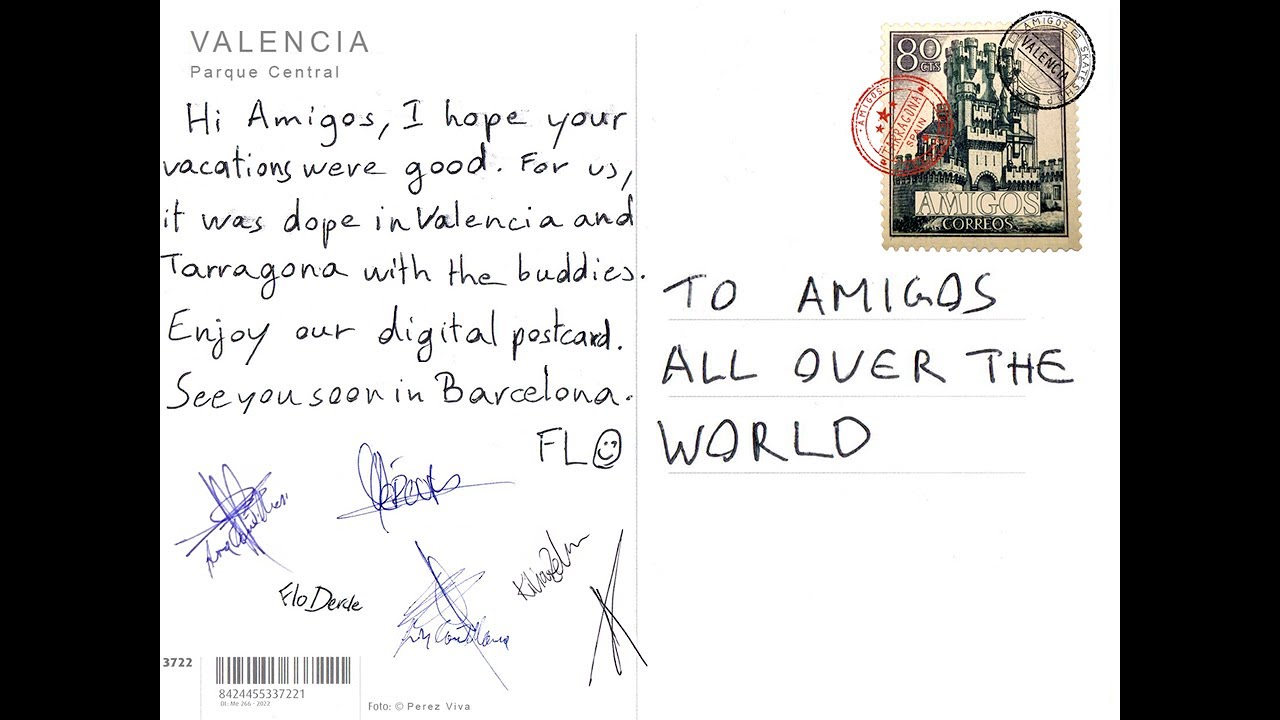 VALENCIA
Parque Central
Hi Amigos, I hope your
vacations were good. For us,
it was dope in Valencia and
Tarragona with the buddies.
Enjoy our digital postcard.
See you soon in Barcelona.
FLO
Flo Derde
3722
8424455337221
DL: Me 266 - 2022
Foto: © Perez Viva
80
CTS
AMIGOS
CORREOS
AMIGOS
TARRAGONA
SPAIN
AMIGOS SKATE SHOP
VALENCIA
TO AMIGOS
ALL OVER THE
WORLD